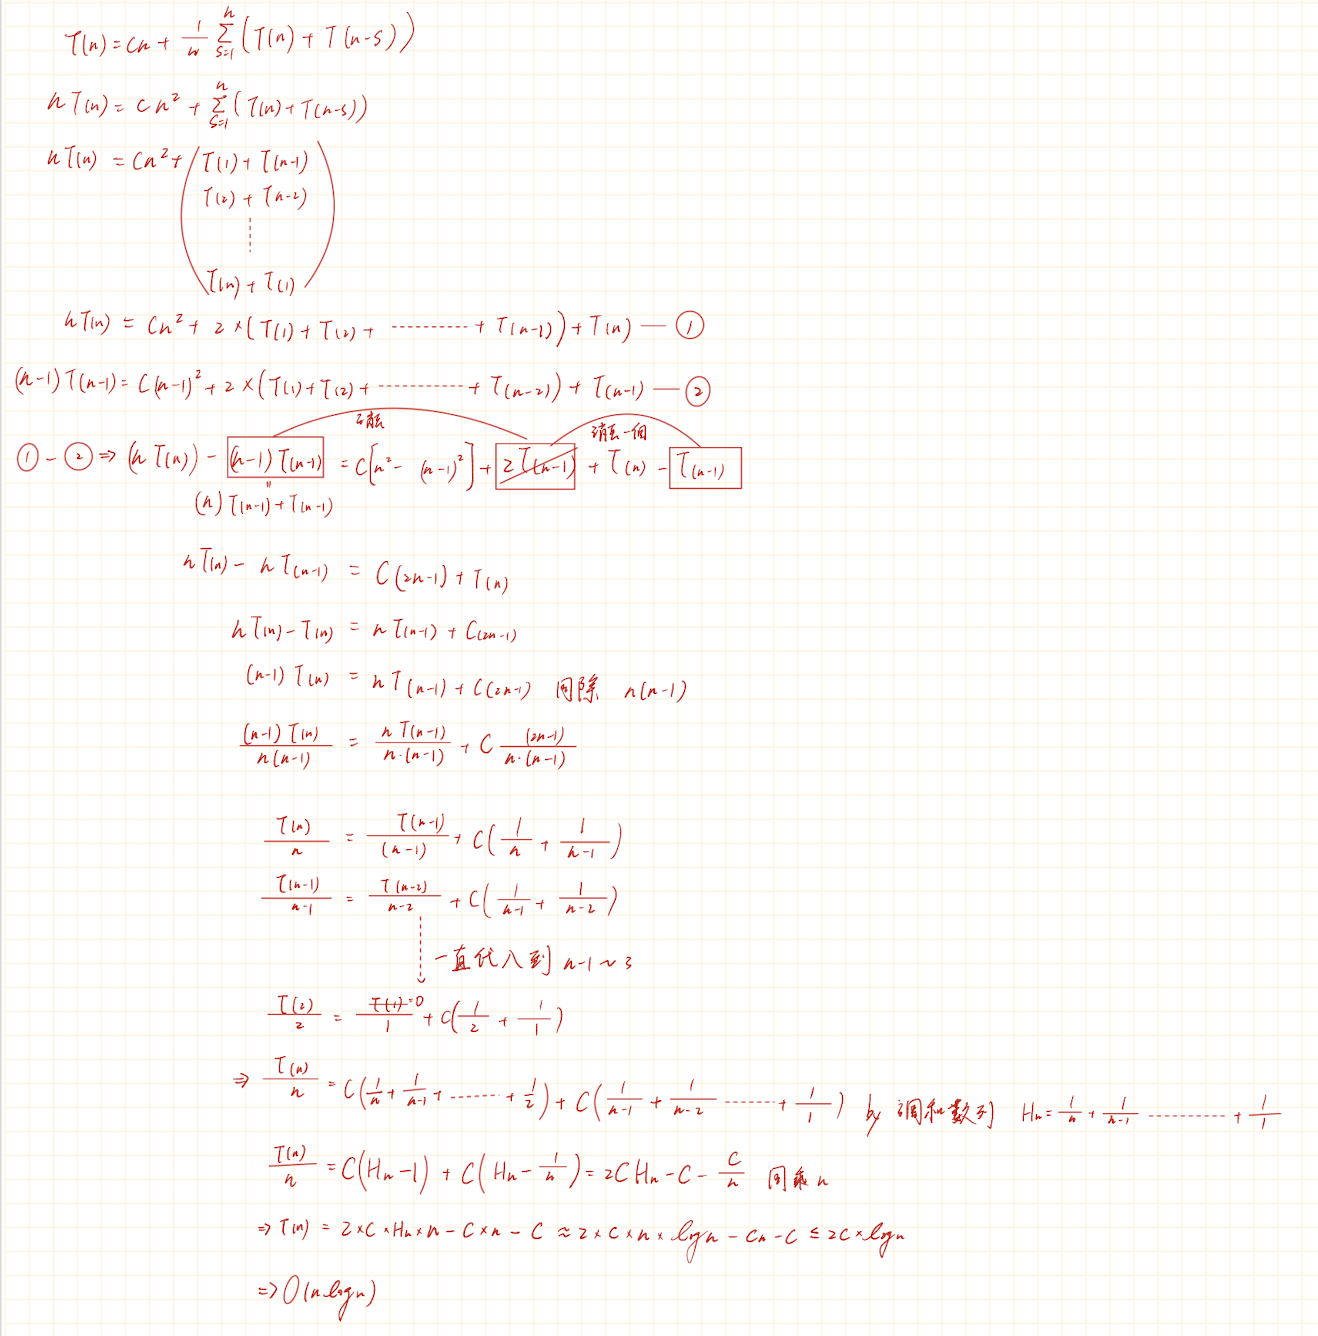 T(n) = cn + 1/n Σ_{s=1}^{n} (T(n) + T(n-s))
n T(n) = c n² + Σ_{s=1}^{n} (T(n) + T(n-s))
n T(n) = Cn² + ( T(1) + T(n-1)
T(2) + T(n-2)
⋮
T(n) + T(1) )
n T(n) = Cn² + 2 × (T(1) + T(2) + ---------- + T(n-1)) + T(n) — ①
(n-1) T(n-1) = C(n-1)² + 2 × (T(1) + T(2) + ---------- + T(n-2)) + T(n-1) — ②
消去一個
① - ② ⇒ (n T(n)) - (n-1) T(n-1) = C[n² - (n-1)²] + 2T(n-1) + T(n) - T(n-1)
(n) T(n-1) + T(n-1)
n T(n) - n T(n-1) = C(2n-1) + T(n)
n T(n) - T(n) = n T(n-1) + C(2n-1)
(n-1) T(n) = n T(n-1) + C(2n-1) 同除 n(n-1)
(n-1) T(n) / n(n-1) = n T(n-1) / n·(n-1) + C (2n-1) / n·(n-1)
T(n)/n = T(n-1)/(n-1) + C(1/n + 1/n-1)
T(n-1)/n-1 = T(n-2)/n-2 + C(1/n-1 + 1/n-2)
一直代入到 n-1 ~ 3
T(2)/2 = T(1)=0/1 + C(1/2 + 1/1)
⇒ T(n)/n = C(1/n + 1/n-1 + ------- + 1/2) + C(1/n-1 + 1/n-2 ------- + 1/1) by 調和數列 Hn = 1/n + 1/n-1 ---------- + 1/1
T(n)/n = C(Hn - 1) + C(Hn - 1/n) = 2CHn - C - C/n 同乘 n
⇒ T(n) = 2×C×Hn×n - C×n - C ≈ 2×C×n×logn - Cn - C ≤ 2C×logn
⇒ O(n logn)